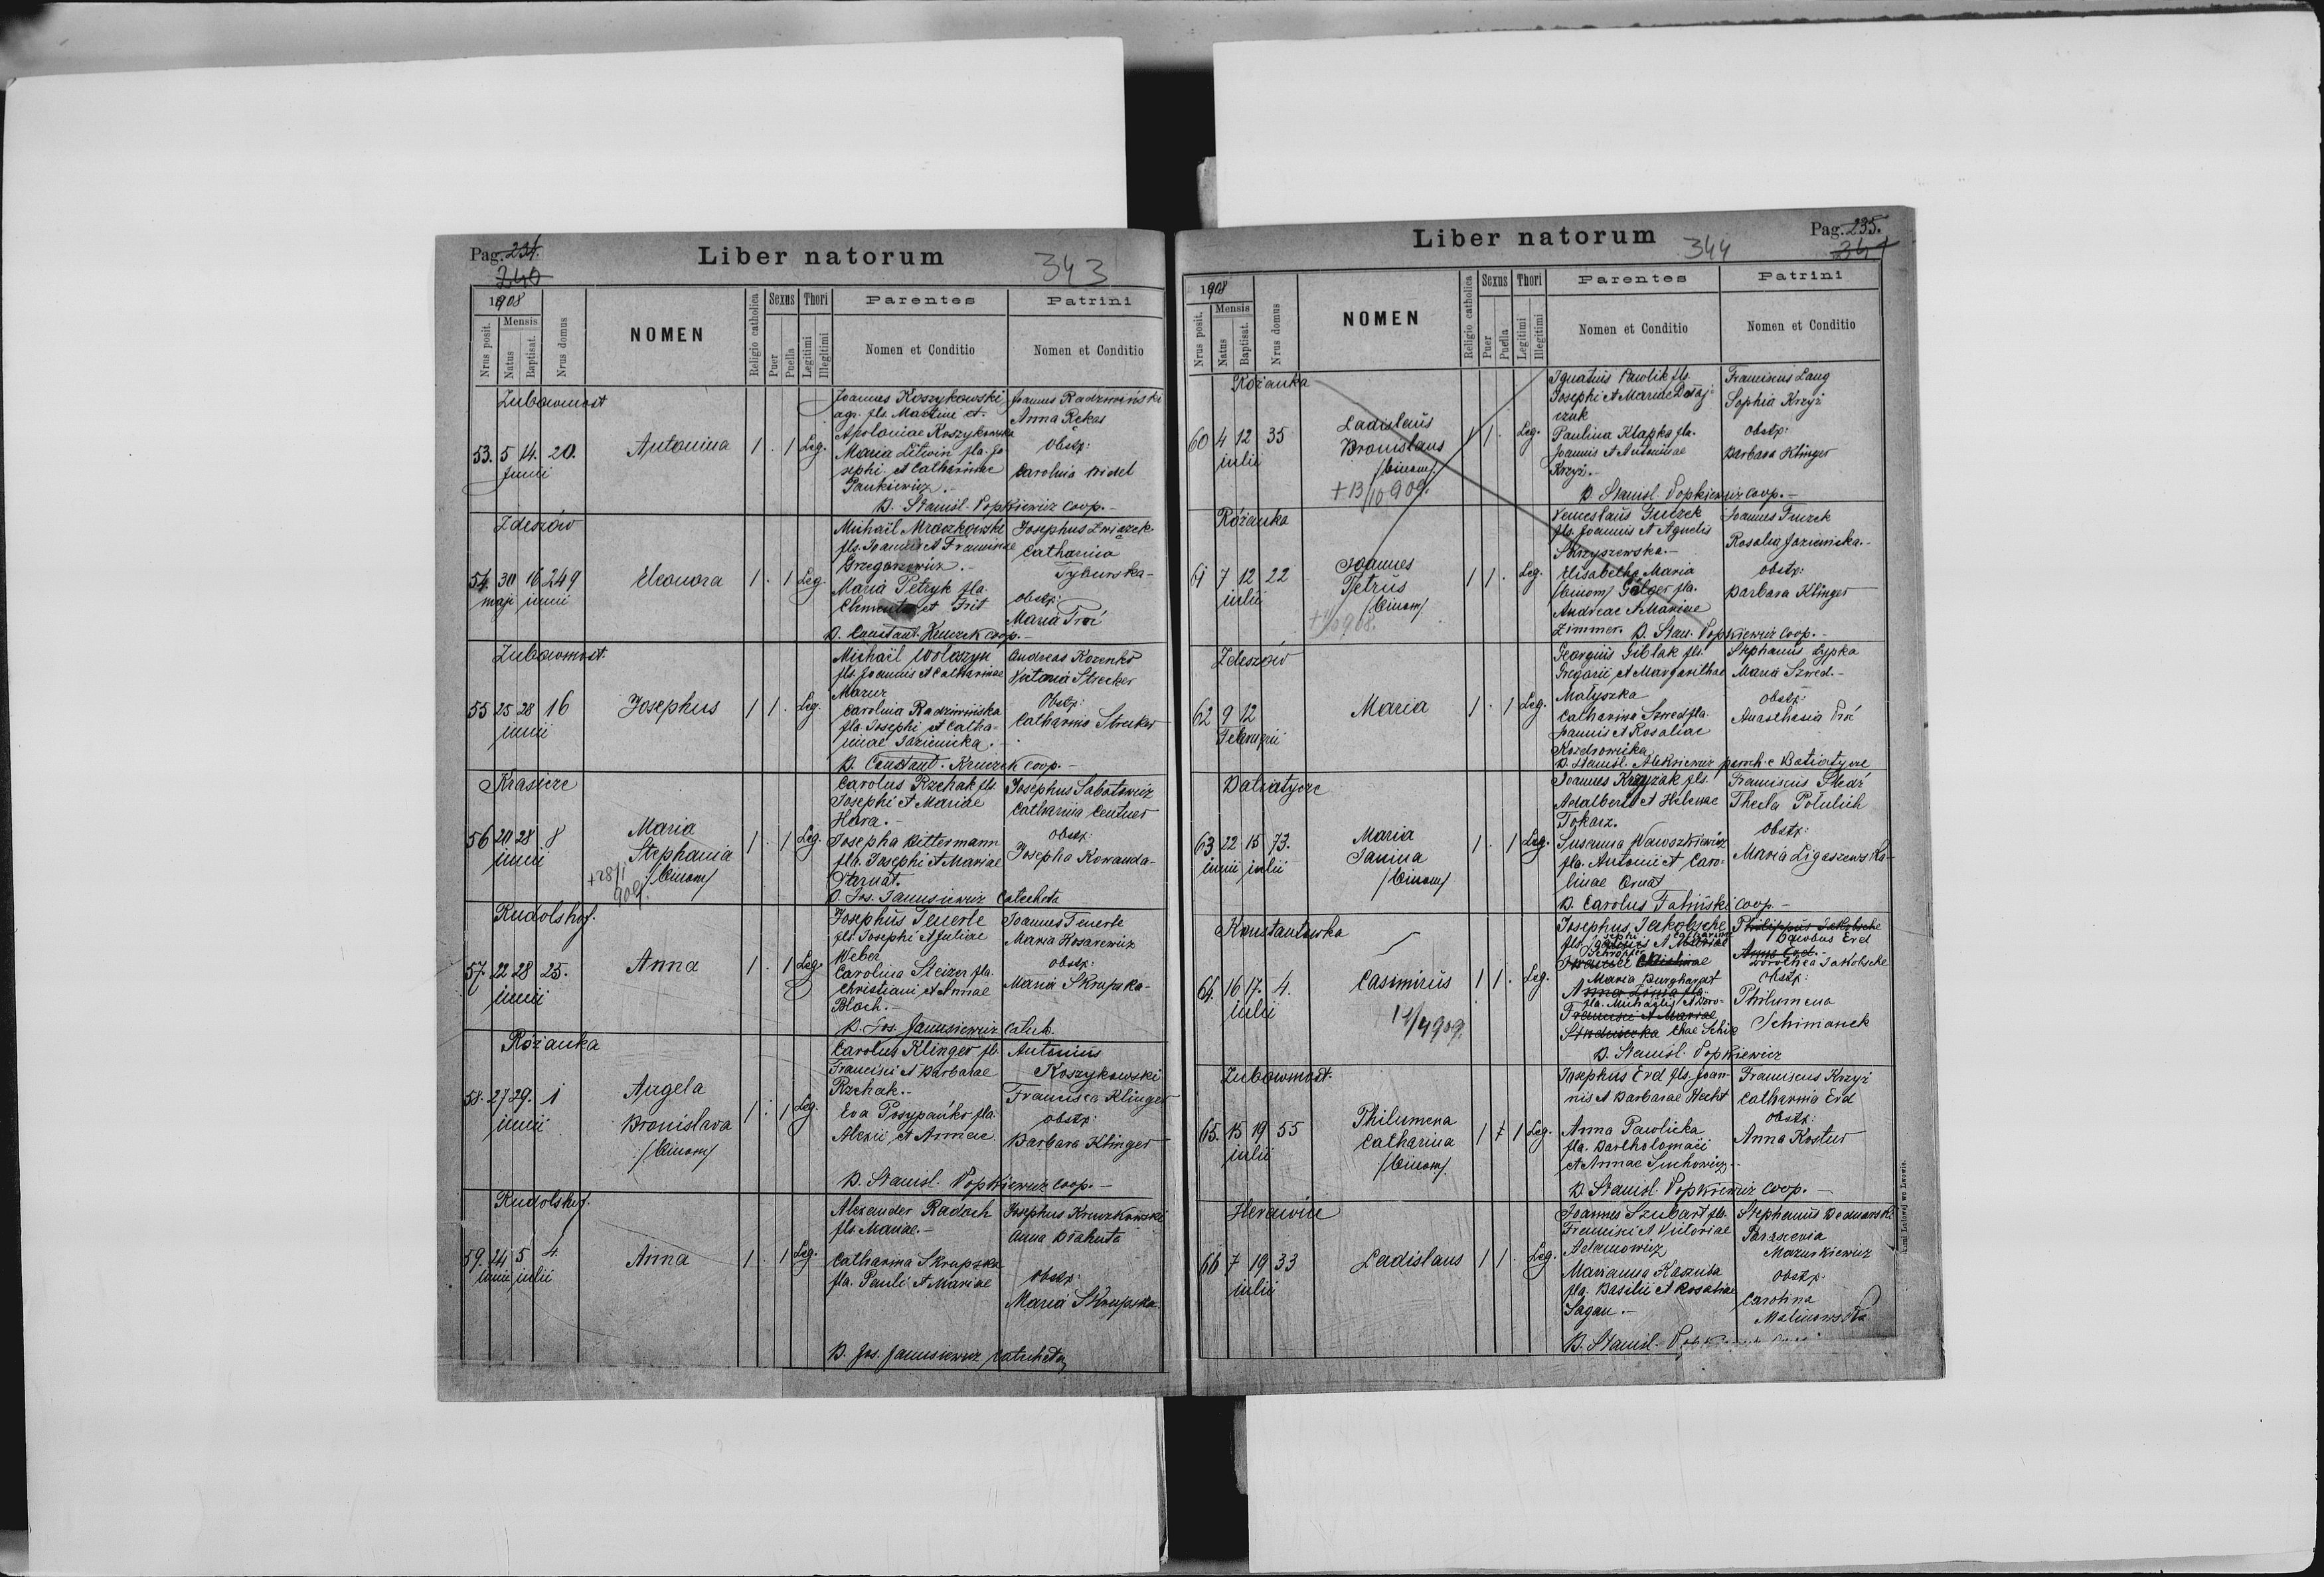 Pag. 234.
240
Liber natorum
343
1908
Nrus posit.
Mensis
Natus
Baptisat.
Nrus domus
NOMEN
Religio catholica
Sexus
Puer
Puella
Thori
Legitimi
Illegitimi
Parentes
Nomen et Conditio
Patrini
Nomen et Conditio
Zubowmost
53. 5 14. 20.
Junii
Antonina
1 . 1 Leg.
Joannes Koszykowski
agr. fls. Martini et
Apoloniae Koszykowska
Maria Litwin fla. Jo-
sephi et Catharinae
Pankiewicz.-
Joannes Radziwiński
Anna Rekas
Obstp:
Carolina Bidel
B. Stanisl. Popkiewicz coop.-
Zdeszów
54. 30 16 249
maji junii
Eleonora
1 . 1 Leg.
Michaël Mraczkowski
fls. Joannis et Franciscae
Grzegorzewicz.-
Maria Petryk fla.
Clementis et Frit
Josephus Związek
Catharina
Tyburska-
obstp:
Maria Proć
B. Constant. Kruczek coop.-
Zubowmost.
55 25 28 16
junii
Josephus
1 1 . Leg.
Michaël Wołoszyn
fls. Joannis et Catharinae
Mazur
Carolina Radziwińska
fla. Josephi et Catha-
rinae Jazienicka.-
Andreas Kozenko
Victoria Strecker
Obstp:
Catharina Strecker
B. Constant. Kruczek coop.-
Krasicze
56 20 28 8
junii
Maria
Stephania
/binom/
+28/1
909.
1 . 1 Leg.
Carolus Rzehak fls.
Josephi et Mariae
Hora.-
Josepha Bittermann
fla. Josephi et Mariae
Parnat.
Josephus Sabatowicz
Catharina Centner
obstp:
Josepha Kowanda-
B. Jos. Janusiewicz Catecheta
Rudolfshof.
57. 22 28 25.
junii
Anna
1 . 1 Leg.
Josephus Feuerle
fls. Josephi et Juliae
Weber
Carolina Steizer fla.
Christiani et Annae
Bloch.-
Joannes Feuerle
Maria Kosarewicz
obstp:
Maria Skrupska-
B. Jos. Janusiewicz Catech.
Rożanka
58. 27 29. 1
junii
Angela
Bronislava
/binom/
1 . 1 Leg.
Carolus Klinger fls.
Francisci et Barbarae
Rzehak.-
Eva Posypańko fla.
Alexii et Annae
Antonius
Koszykowski
Francisca Klinger
obstp:
Barbara Klinger
B. Stanisl. Popkiewicz coop.-
Rudolfshof.
59. 24 5 4.
junii julii
Anna
1 . 1 Leg.
Alexander Radoch
fls. Mariae.-
Catharina Skrupska
fla. Pauli et Mariae
Josephus Kruczkowski
Anna Białuta
obstp:
Maria Skrupska
B. Jos. Janusiewicz Catecheta
Liber natorum
344
Pag. 235.
241
1908
Nrus posit.
Mensis
Natus
Baptisat.
Nrus domus
NOMEN
Religio catholica
Sexus
Puer
Puella
Thori
Legitimi
Illegitimi
Parentes
Nomen et Conditio
Patrini
Nomen et Conditio
Rożanka
60 4 12 35
julii
Ladislaus
Bronislaus
/binom/
+13/10 909.
1 1 . Leg.
Ignatius Pawlik fls.
Josephi et Mariae
czuk
Paulina Klapka fla.
Joannis et Antoninae
Krzyż.-
Franciscus Lang
Sophia Krzyż
obstp:
Barbara Klinger
B. Stanisl. Popkiewicz coop.-
Rożanka
61 7 12 22
julii
Joannes
Petrus
/binom/
908.
1 1 . Leg.
Venceslaus Guczek
fls. Joannis et Agnetis
Skrzyszewska.-
Elisabetha Maria
/binom/ Gelger fla.
Andreae et Mariae
Zimmer. B. Stan. Popkiewicz coop.-
Joannes Fuczek
Rosalia Jazienicka.-
obstp:
Barbara Klinger
Zdeszów
62 9 12
Februarii
Maria
1 . 1 Leg.
Georgius Giblak fls.
Gregorii et Margarithae
Matyszka
Catharina Szwed fla.
Joannis et Rosaliae
Kozdrowicka
Stephanus Łypka
Maria Szwed.-
obstp:
Anasthasia Proć
B. Stanisl. Aleksiewicz paroch. e Batiatycze
Batiatycze
63 22 15 73.
junii julii
Maria
Janina
/binom/
1 . 1 Leg.
Joannes Krzyżak fls.
Adalberti et Helenae
Tokarz.
Susanna Wawszkiewicz
fla. Antonii et Caro-
linae Ornat
Franciscus Śledź
Thecla Potulich
Obstp:
Maria Ligaszewska-
B. Carolus Fatinski coop.-
Konstantówka
64. 16 17. 4.
julii
Casimirus
12/4 909.
1 1 . Leg.
Josephus Jakobsche
Maria Burghardt
fla. Michaelis et Doro-
theae Schik
Philippus Jakobsche
Jacobus Erd
Anna Erd.-
Dorothea Jakobsche
obstp:
Philumena
Schimanek
B. Stanisl. Popkiewicz
Zubowmost.
65. 15 19 55
julii
Philumena
Catharina
/binom/
1 . 1 Leg.
Josephus Erd fls. Joan-
nis et Barbarae Hecht
Anna Pawlicka
fla. Bartholomaei
et Annae Suchowicz.-
Franciscus Krzyż
Catharina Erd
obstp:
Anna Kostur
B. Stanisl. Popkiewicz coop.-
Horawice
66 7 19 33
julii
Ladislaus
1 1 . Leg.
Joannes Szubart fls.
Francisci et Victoriae
Adamowicz
Marianna Kaszuba
fla. Basilii et Rosaliae
Sagan.-
Stephanus Bednarski
Parascevia
Mazurkiewicz
obstp:
Carolina
Malinowska
B. Stanisl. Popkiewicz coop.